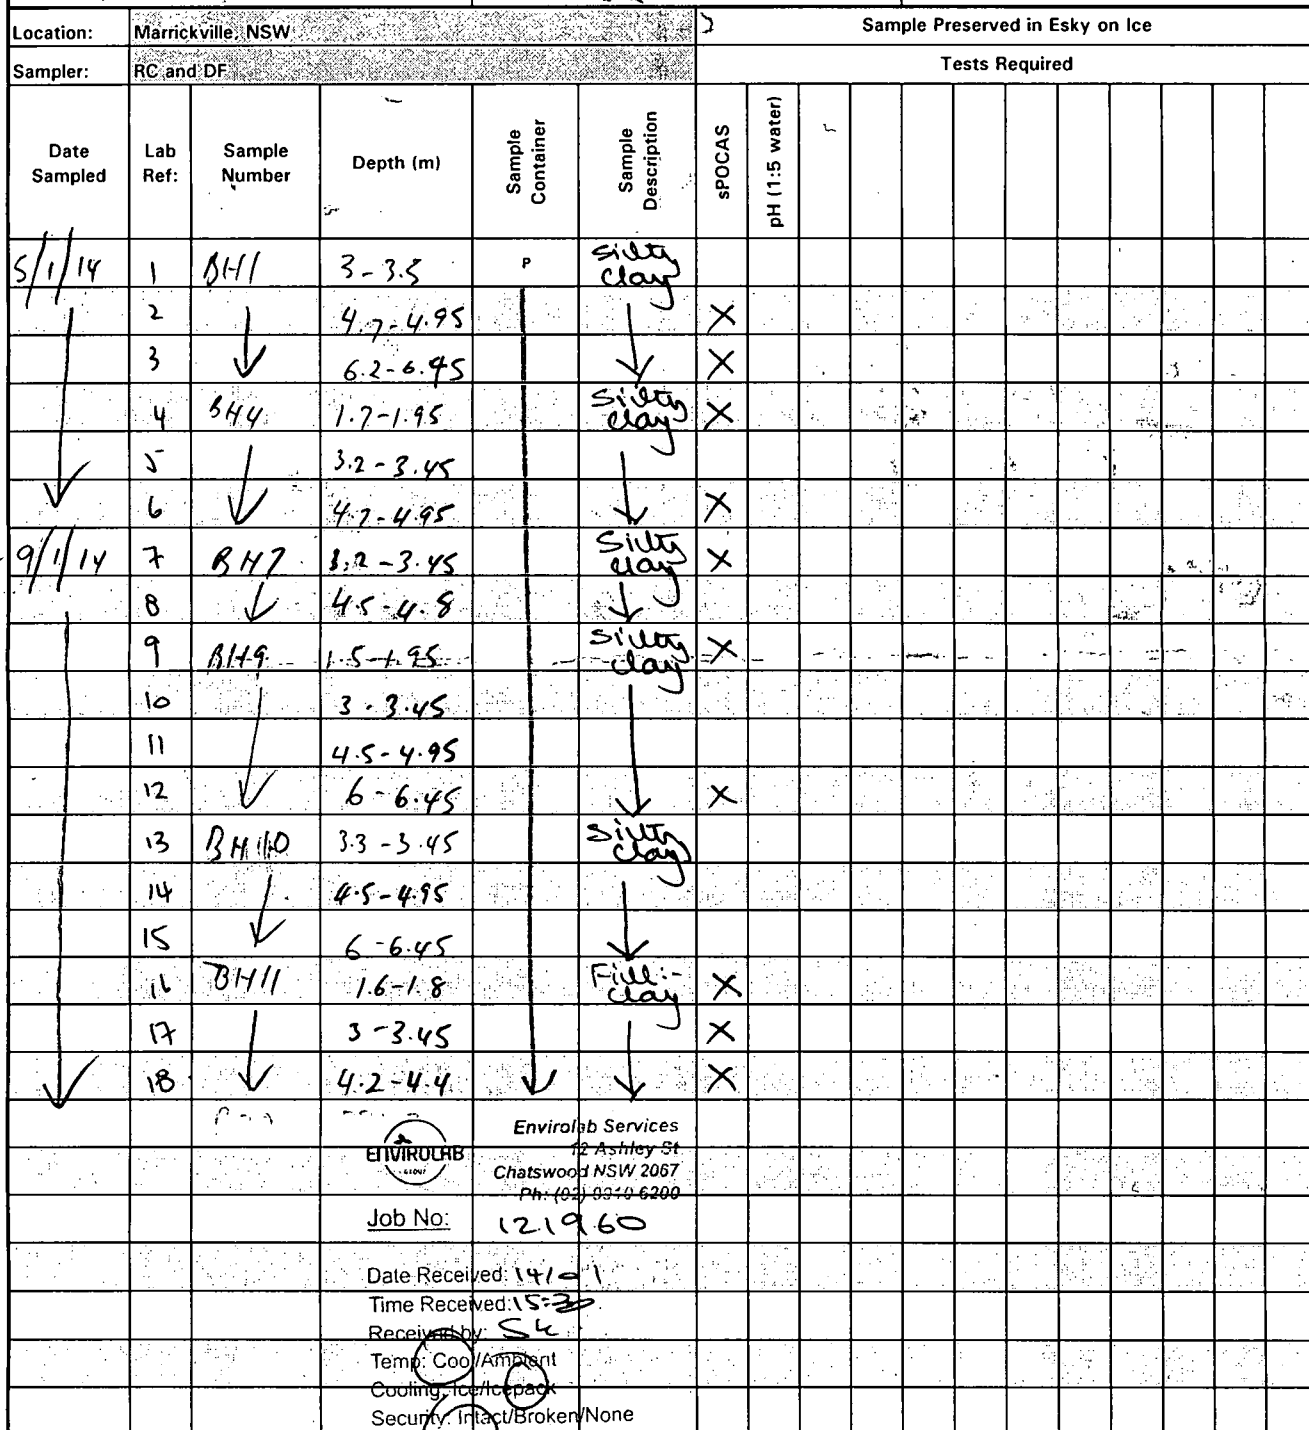 Location: Marrickville, NSW Sample Preserved in Esky on Ice
Sampler: RC and DF Tests Required
Date Sampled Lab Ref: Sample Number Depth (m) Sample Container Sample Description sPOCAS pH (1:5 water)
5/1/14 1 BH1 3-3.5 P Silty clay
2 4.7-4.95 X
3 6.2-6.45 X
4 BH4 1.7-1.95 Silty clay X
5 3.2-3.45
6 4.7-4.95 X
9/1/14 7 BH7 3.2-3.45 Silty clay X
8 4.5-4.8
9 BH9 1.5-1.95 Silty clay X
10 3-3.45
11 4.5-4.95
12 6-6.45 X
13 BH10 3.3-3.45 Silty clay
14 4.5-4.95
15 6-6.45
16 BH11 1.6-1.8 Fill:- clay X
17 3-3.45 X
18 4.2-4.4 X
ENVIROLAB GROUP
Envirolab Services
12 Ashley St
Chatswood NSW 2067
Ph: (02) 9910 6200
Job No: 121960
Date Received: 14/01
Time Received: 15:30
Received by: SK
Temp: Cool/Ambient
Cooling: Ice/Icepack
Security: Intact/Broken/None